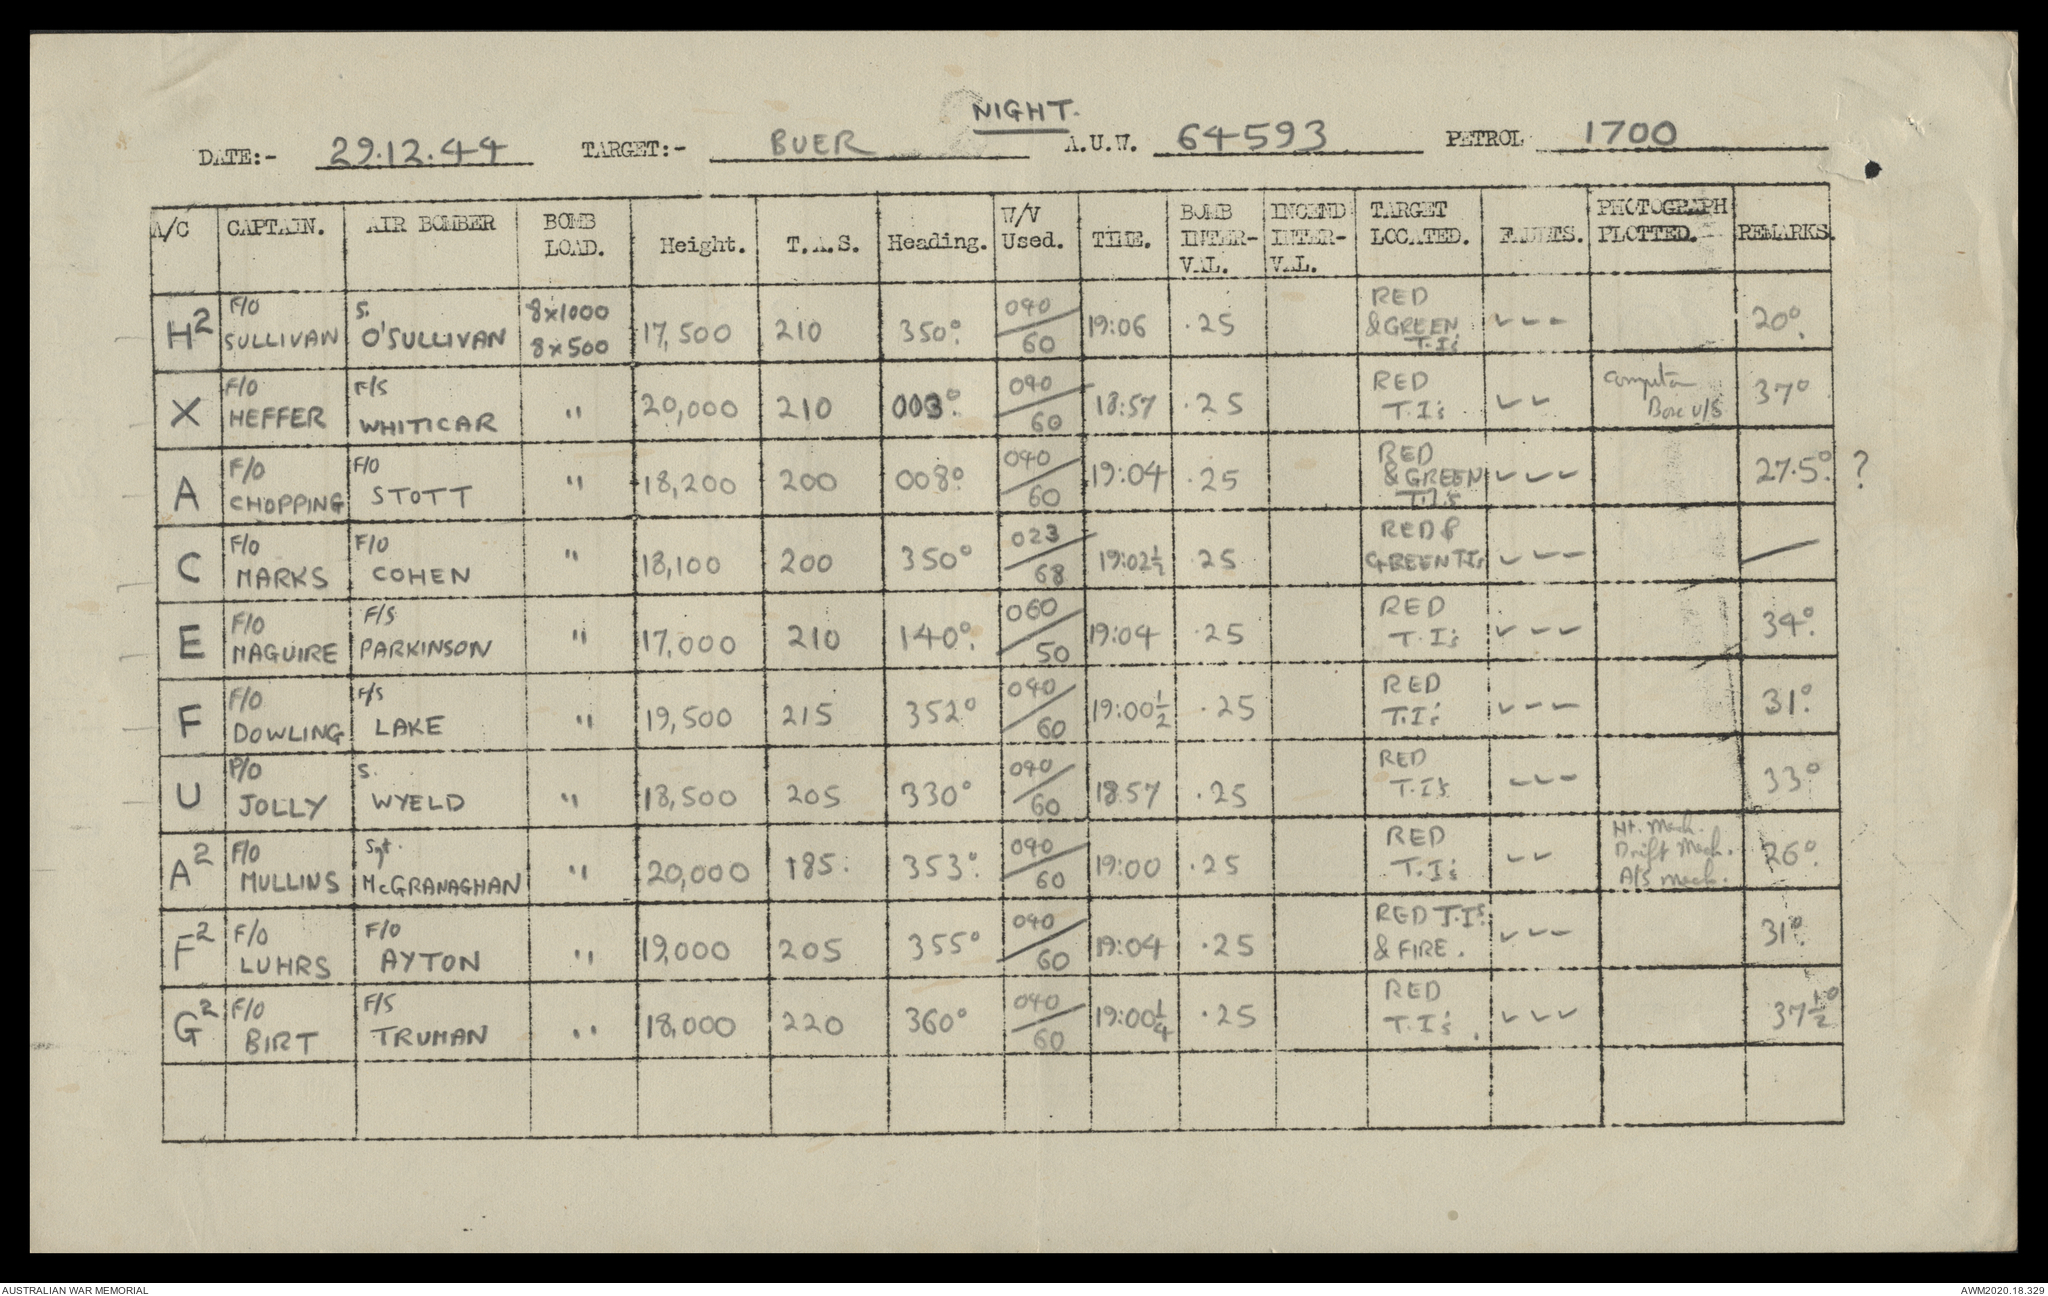 NIGHT.
DATE:- 29.12.44 TARGET:- BUER A.U.W. 64593 PETROL 1700
A/C CAPTAIN. AIR BOMBER BOMB LOAD. Height. T.A.S. Heading. W/V Used. TIME. BOMB INTER-VAL. INCEND INTER-VAL. TARGET LOCATED. FAULTS. PHOTOGRAPH PLOTTED. REMARKS.
H2 F/O SULLIVAN S. O'SULLIVAN 8x1000 8x500 17,500 210 350°. 040/60 19:06 .25 RED & GREEN T.I's ✓ ✓ – 20°.
X F/O HEFFER F/S WHITICAR " 20,000 210 003°. 040/60 18:57 .25 RED T.I's ✓ ✓ Computer Box U/S 37°
A F/O CHOPPING F/O STOTT " 18,200 200 008°. 040/60 19:04 .25 RED & GREEN T.I's ✓ ✓ – 27.5°. ?
C F/O MARKS F/O COHEN " 18,100 200 350° 023/68 19:02½ .25 RED & GREEN T.I's ✓ – – —
E F/O MAGUIRE F/S PARKINSON " 17,000 210 140°. 060/50 19:04 .25 RED T.I's ✓ – ✓ 34°.
F F/O DOWLING F/S LAKE " 19,500 215 352° 040/60 19:00½ .25 RED T.I's ✓ – – 31°.
U P/O JOLLY S. WYELD " 18,500 205 330° 040/60 18:57 .25 RED T.I's ✓ ✓ – 33°
A2 F/O MULLINS Sgt. McGRANAGHAN " 20,000 185. 353°. 040/60 19:00 .25 RED T.I's ✓ ✓ Ht. Mech. Drift Mech. A/S Mech. 26°.
F2 F/O LUHRS F/O AYTON " 19,000 205 355° 040/60 19:04 .25 RED T.I's & FIRE. ✓ – ✓ 31°.
G2 F/O BIRT F/S TRUMAN " 18,000 220 360° 040/60 19:00¼ .25 RED T.I's. ✓ ✓ ✓ 37½°
AUSTRALIAN WAR MEMORIAL AWM2020.18.329